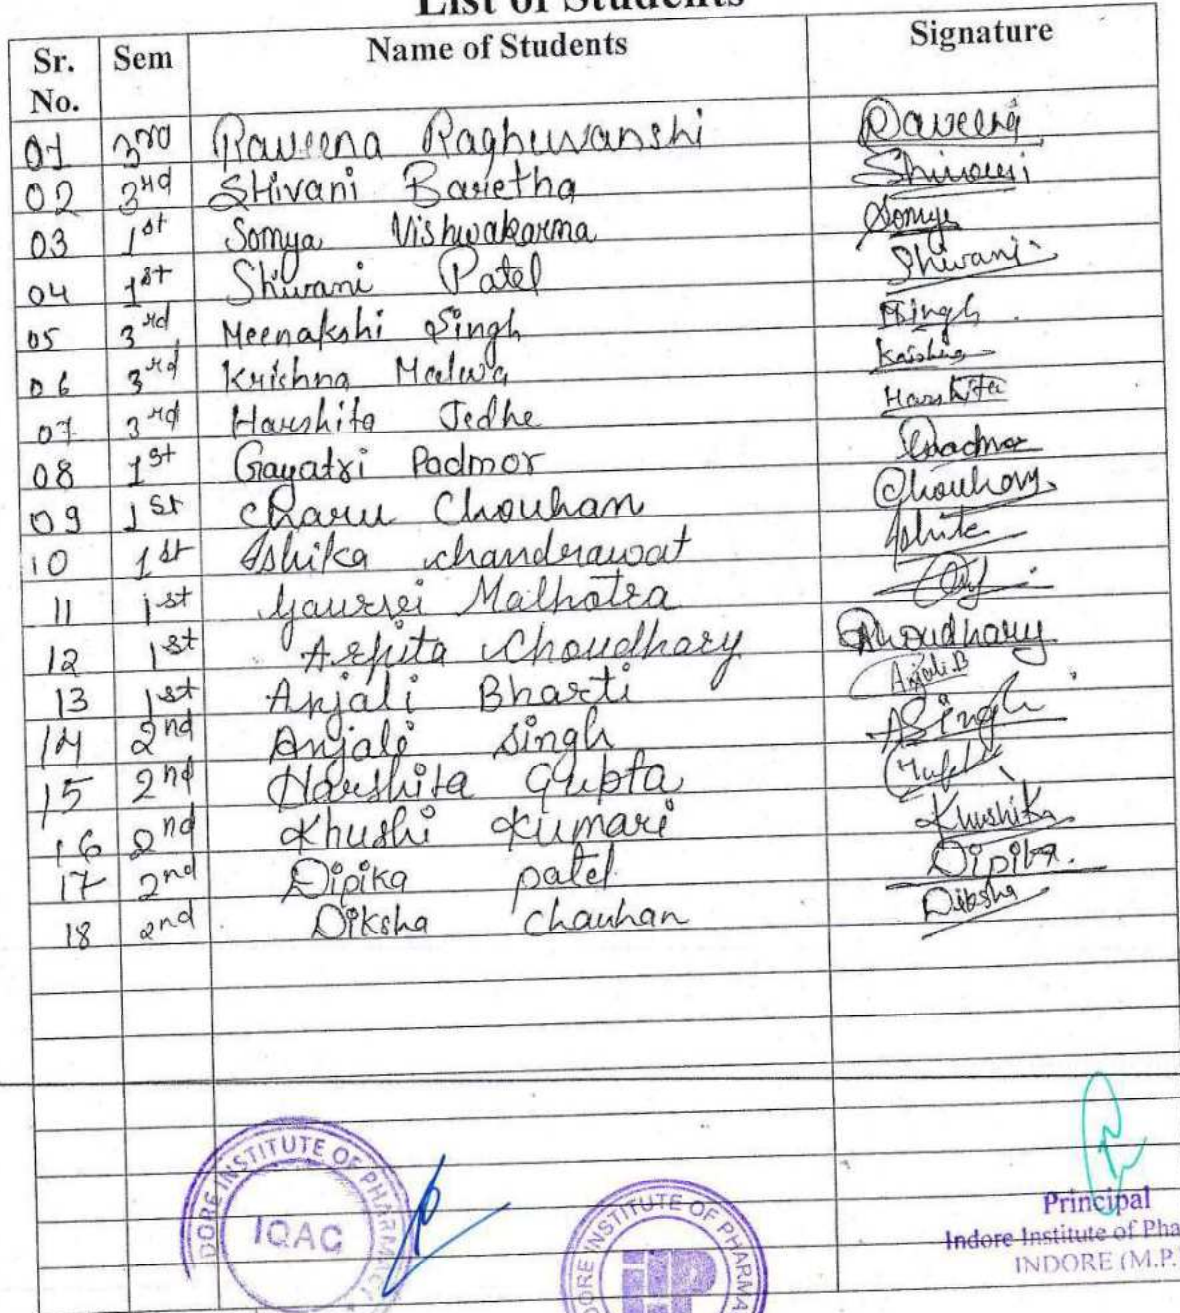 List of Students
Sr. No. Sem Name of Students Signature
01 3rd Raveena Raghuwanshi Raveena
02 3rd SHivani Baretha Shivani
03 1st Somya Vishwakarma Somya
04 1st Shivani Patel Shivani
05 3rd Meenakshi Singh Singh
06 3rd Krishna Malwa Krishna
07 3rd Harshita Jedhe Harshita
08 1st Gayatri Padmor
09 1st Charu Chouhan Chouhan
10 1st Ishika chandrawat Ishika
11 1st Gaurvi Malhotra
12 1st Arpita Choudhary Choudhary
13 1st Anjali Bharti Anjali.B
14 2nd Anjali Singh ASingh
15 2nd Harshita Gupta
16 2nd Khushi Kumari Khushi
17 2nd Dipika patel Dipika.
18 2nd Diksha Chauhan Diksha
DORE INSTITUTE OF PHARMAC
IQAC
DORE INSTITUTE OF PHARMA
IIP
Principal
Indore Institute of Pha
INDORE (M.P.